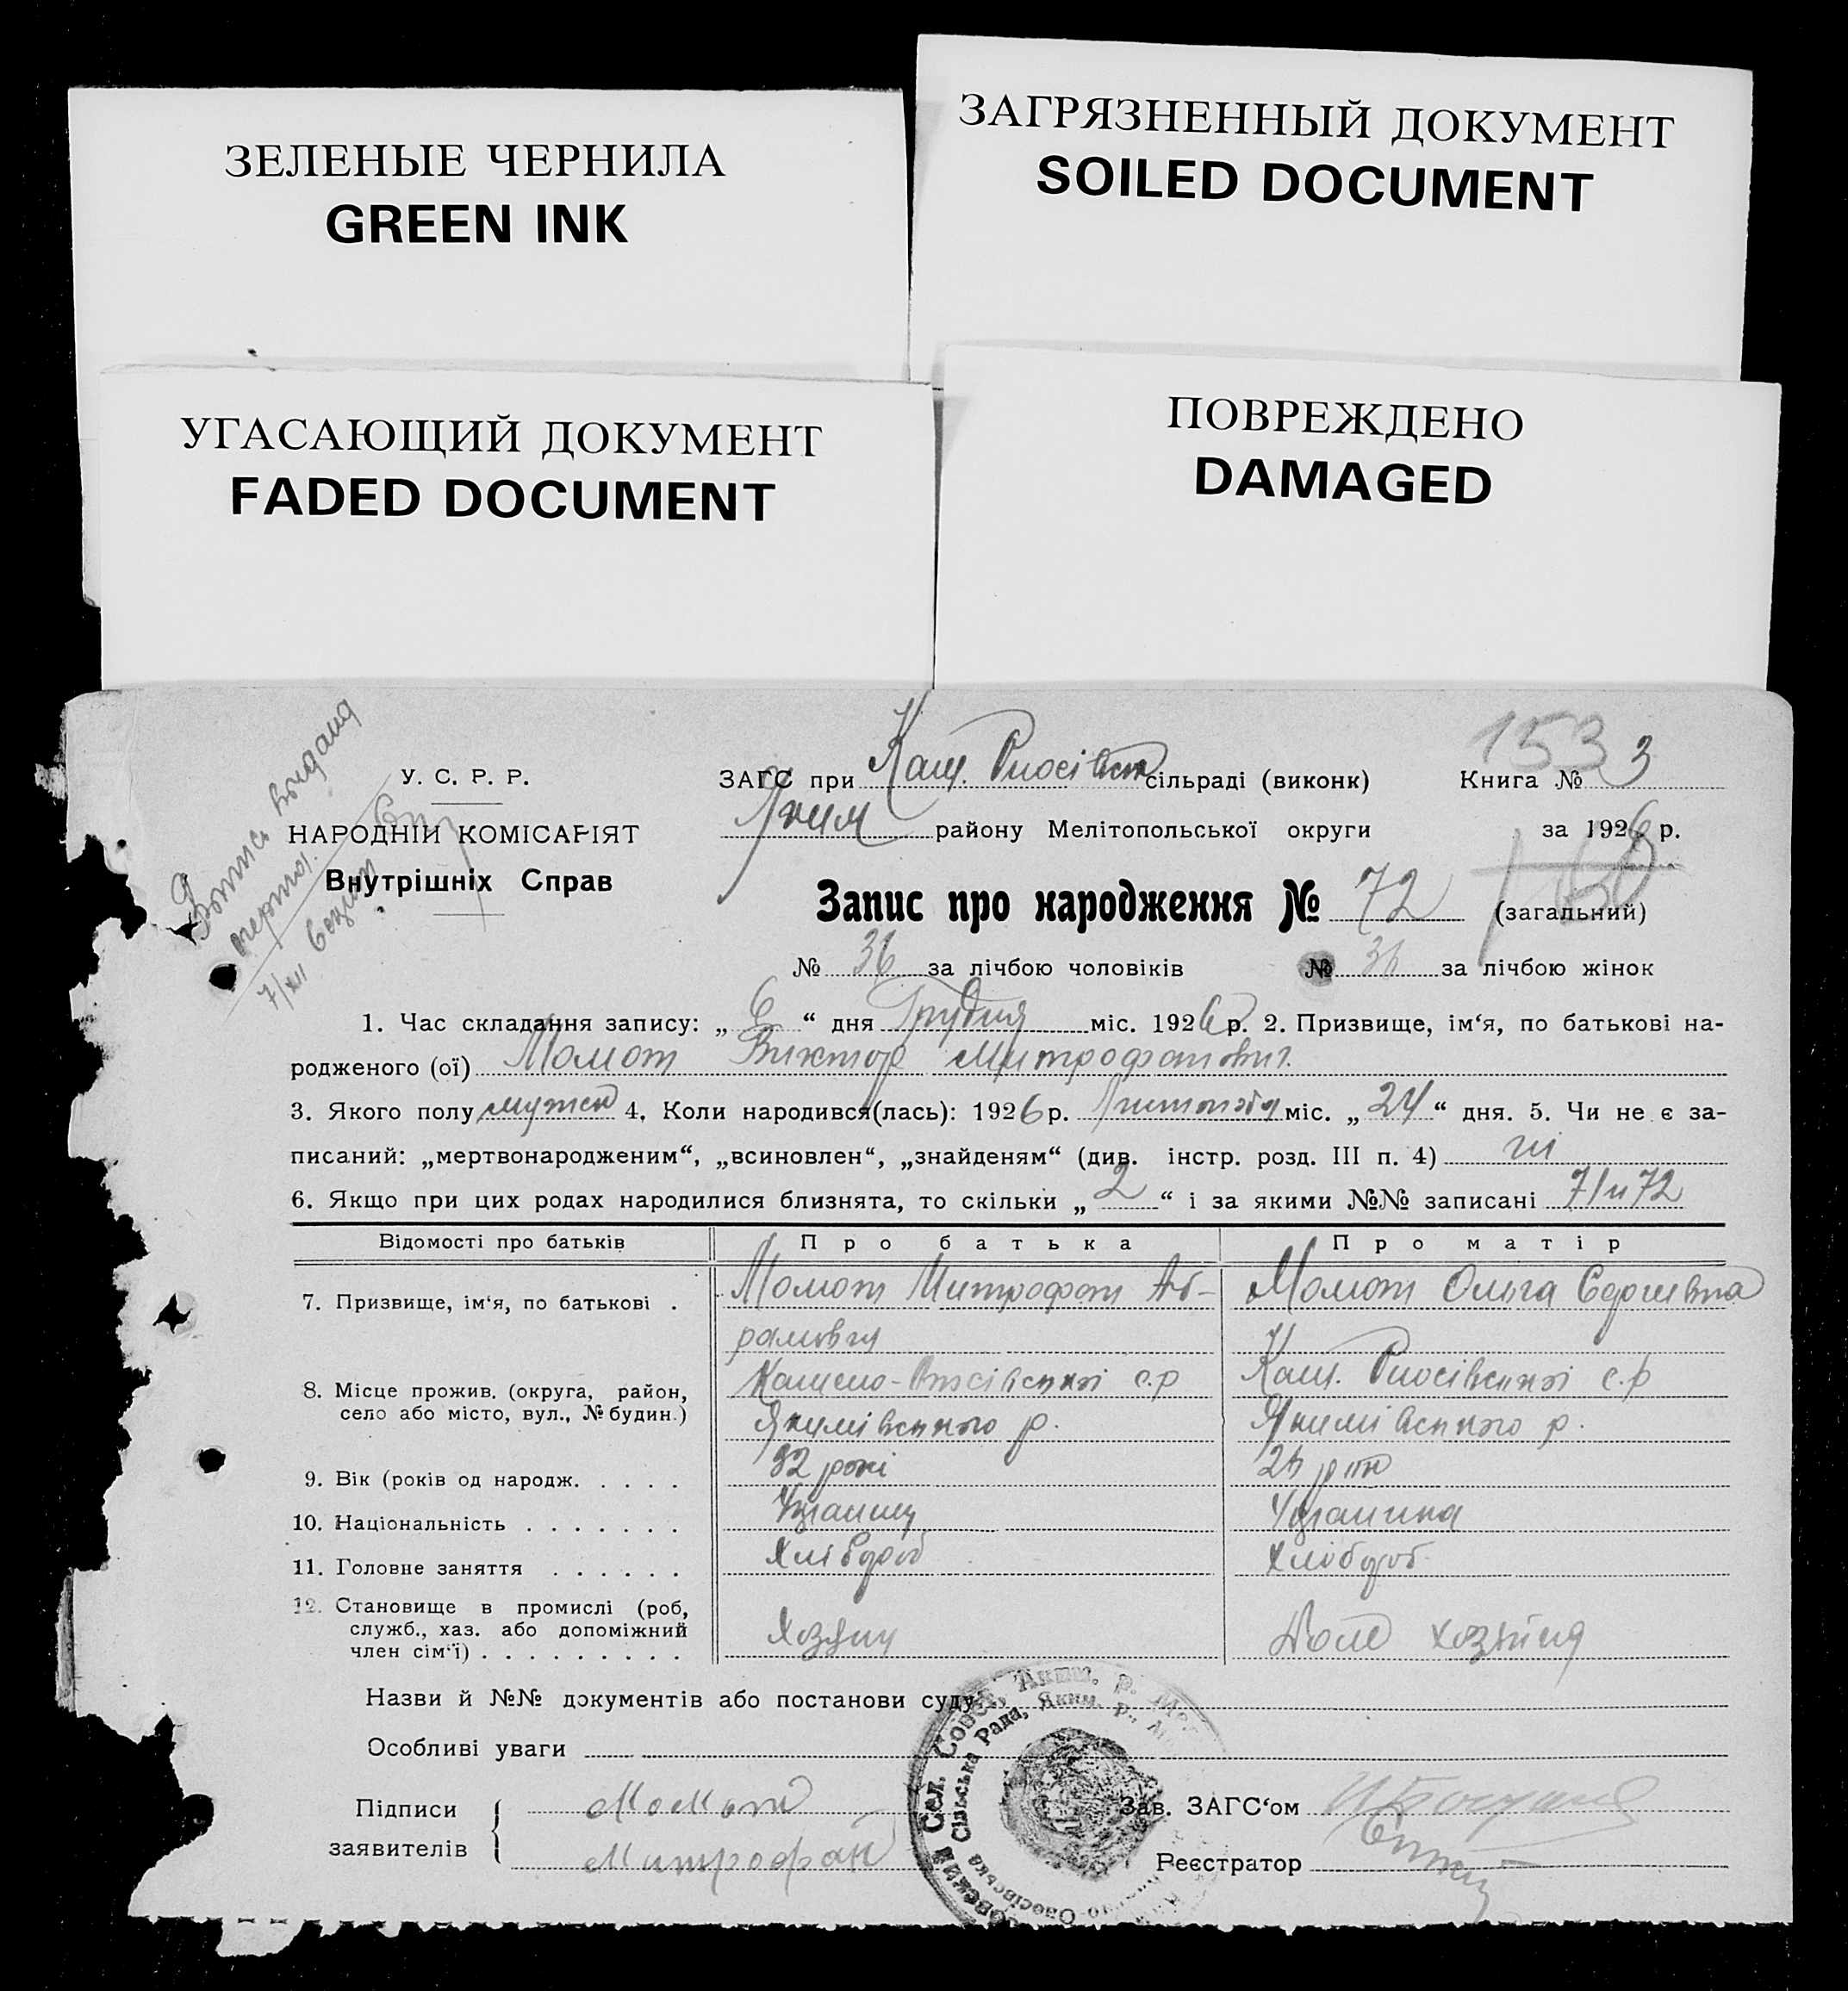 ЗЕЛЕНЫЕ ЧЕРНИЛА
GREEN INK
ЗАГРЯЗНЕННЫЙ ДОКУМЕНТ
SOILED DOCUMENT
УГАСАЮЩИЙ ДОКУМЕНТ
FADED DOCUMENT
ПОВРЕЖДЕНО
DAMAGED
153
У. С. Р. Р.
НАРОДНІЙ КОМІСАРІЯТ
Внутрішніх Справ
ЗАГС при Каш. сільраді (виконк) Книга № 3
Яким району Мелітопольської округи за 1926 р.
Запис про народження № 72 (загальний)
№ 36 за лічбою чоловіків № 36 за лічбою жінок
1. Час складання запису: „ 6 “ дня Грудня міс. 1926 р. 2. Призвище, ім‘я, по батькові на-
родженого (ої) Момот Виктор Митрофанович.
3. Якого полу мужск 4. Коли народився(лась): 1926 р. міс. „ 24 “ дня. 5. Чи не є за-
писаний: „мертвонародженим“, „всиновлен“, „знайденям“ (див. інстр. розд. III п. 4) ні
6. Якщо при цих родах народилися близнята, то скільки „ 2 “ і за якими №№ записані 71 и 72
Відомості про батьків Про батька Про матір
7. Призвище, ім‘я, по батькові . Момот Митрофан Аб- Момот Ольга
рамович
8. Місце прожив. (округа, район, с.р Каш. с.р
село або місто, вул., № будин.) Якимівського р. Якимівського р.
9. Вік (років од народж. . . . . 32 рокі
10. Національність . . . . . . . Українка
11. Головне заняття . . . . . . Хлібороб Хлібороб
12. Становище в промислі (роб,
служб., хаз. або допоміжний
член сім‘ї) . . . . . . . . . Хозяин хозяйка
Назви й №№ документів або постанови суду:
Особливі уваги
Підписи Момот Зав. ЗАГС‘ом
заявителів Митрофан Реєстратор
Сел. Совет, Яким. р.
Сільська Рада, Яким. р.,